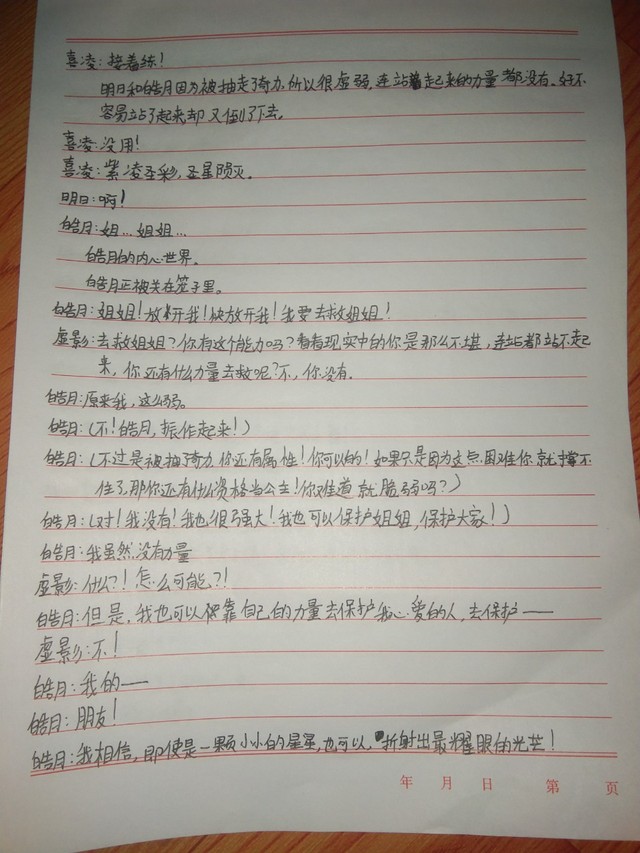 喜凌：接着练！
明日和皓月因为被抽走了奇力，所以很虚弱，连站着起来的力量都没有。好不
容易站了起来，却又倒了下去。
喜凌：没用！
喜凌：紫凌圣彩，圣星陨灭。
明日：啊！
皓月：姐…姐姐…
皓月的内心世界。
皓月正被关在笼子里。
皓月：姐姐！放开我！快放开我！我要去救姐姐！
虚影：去救姐姐？你有这个能力吗？看看现实中的你是那么不堪，连站都站不起
来，你还有什么力量去救呢？不，你没有。
皓月：原来我，这么弱。
皓月：（不！皓月，振作起来！）
皓月：（不过是被抽奇力，你还有属性！你可以的！如果只是因为这点困难你就撑不
住了，那你还有什么资格当公主！你难道就脆弱吗？）
皓月：（对！我没有！我也很强大！我也可以保护姐姐，保护大家！）
皓月：我虽然没有力量
虚影：什么？！怎么可能？！
皓月：但是，我也可以依靠自己的力量去保护我心爱的人，去保护——
虚影：不！
皓月：我的——
皓月：朋友！
皓月：我相信，即使是一颗小小的星星，也可以，折射出最耀眼的光芒！
年 月 日 第 页